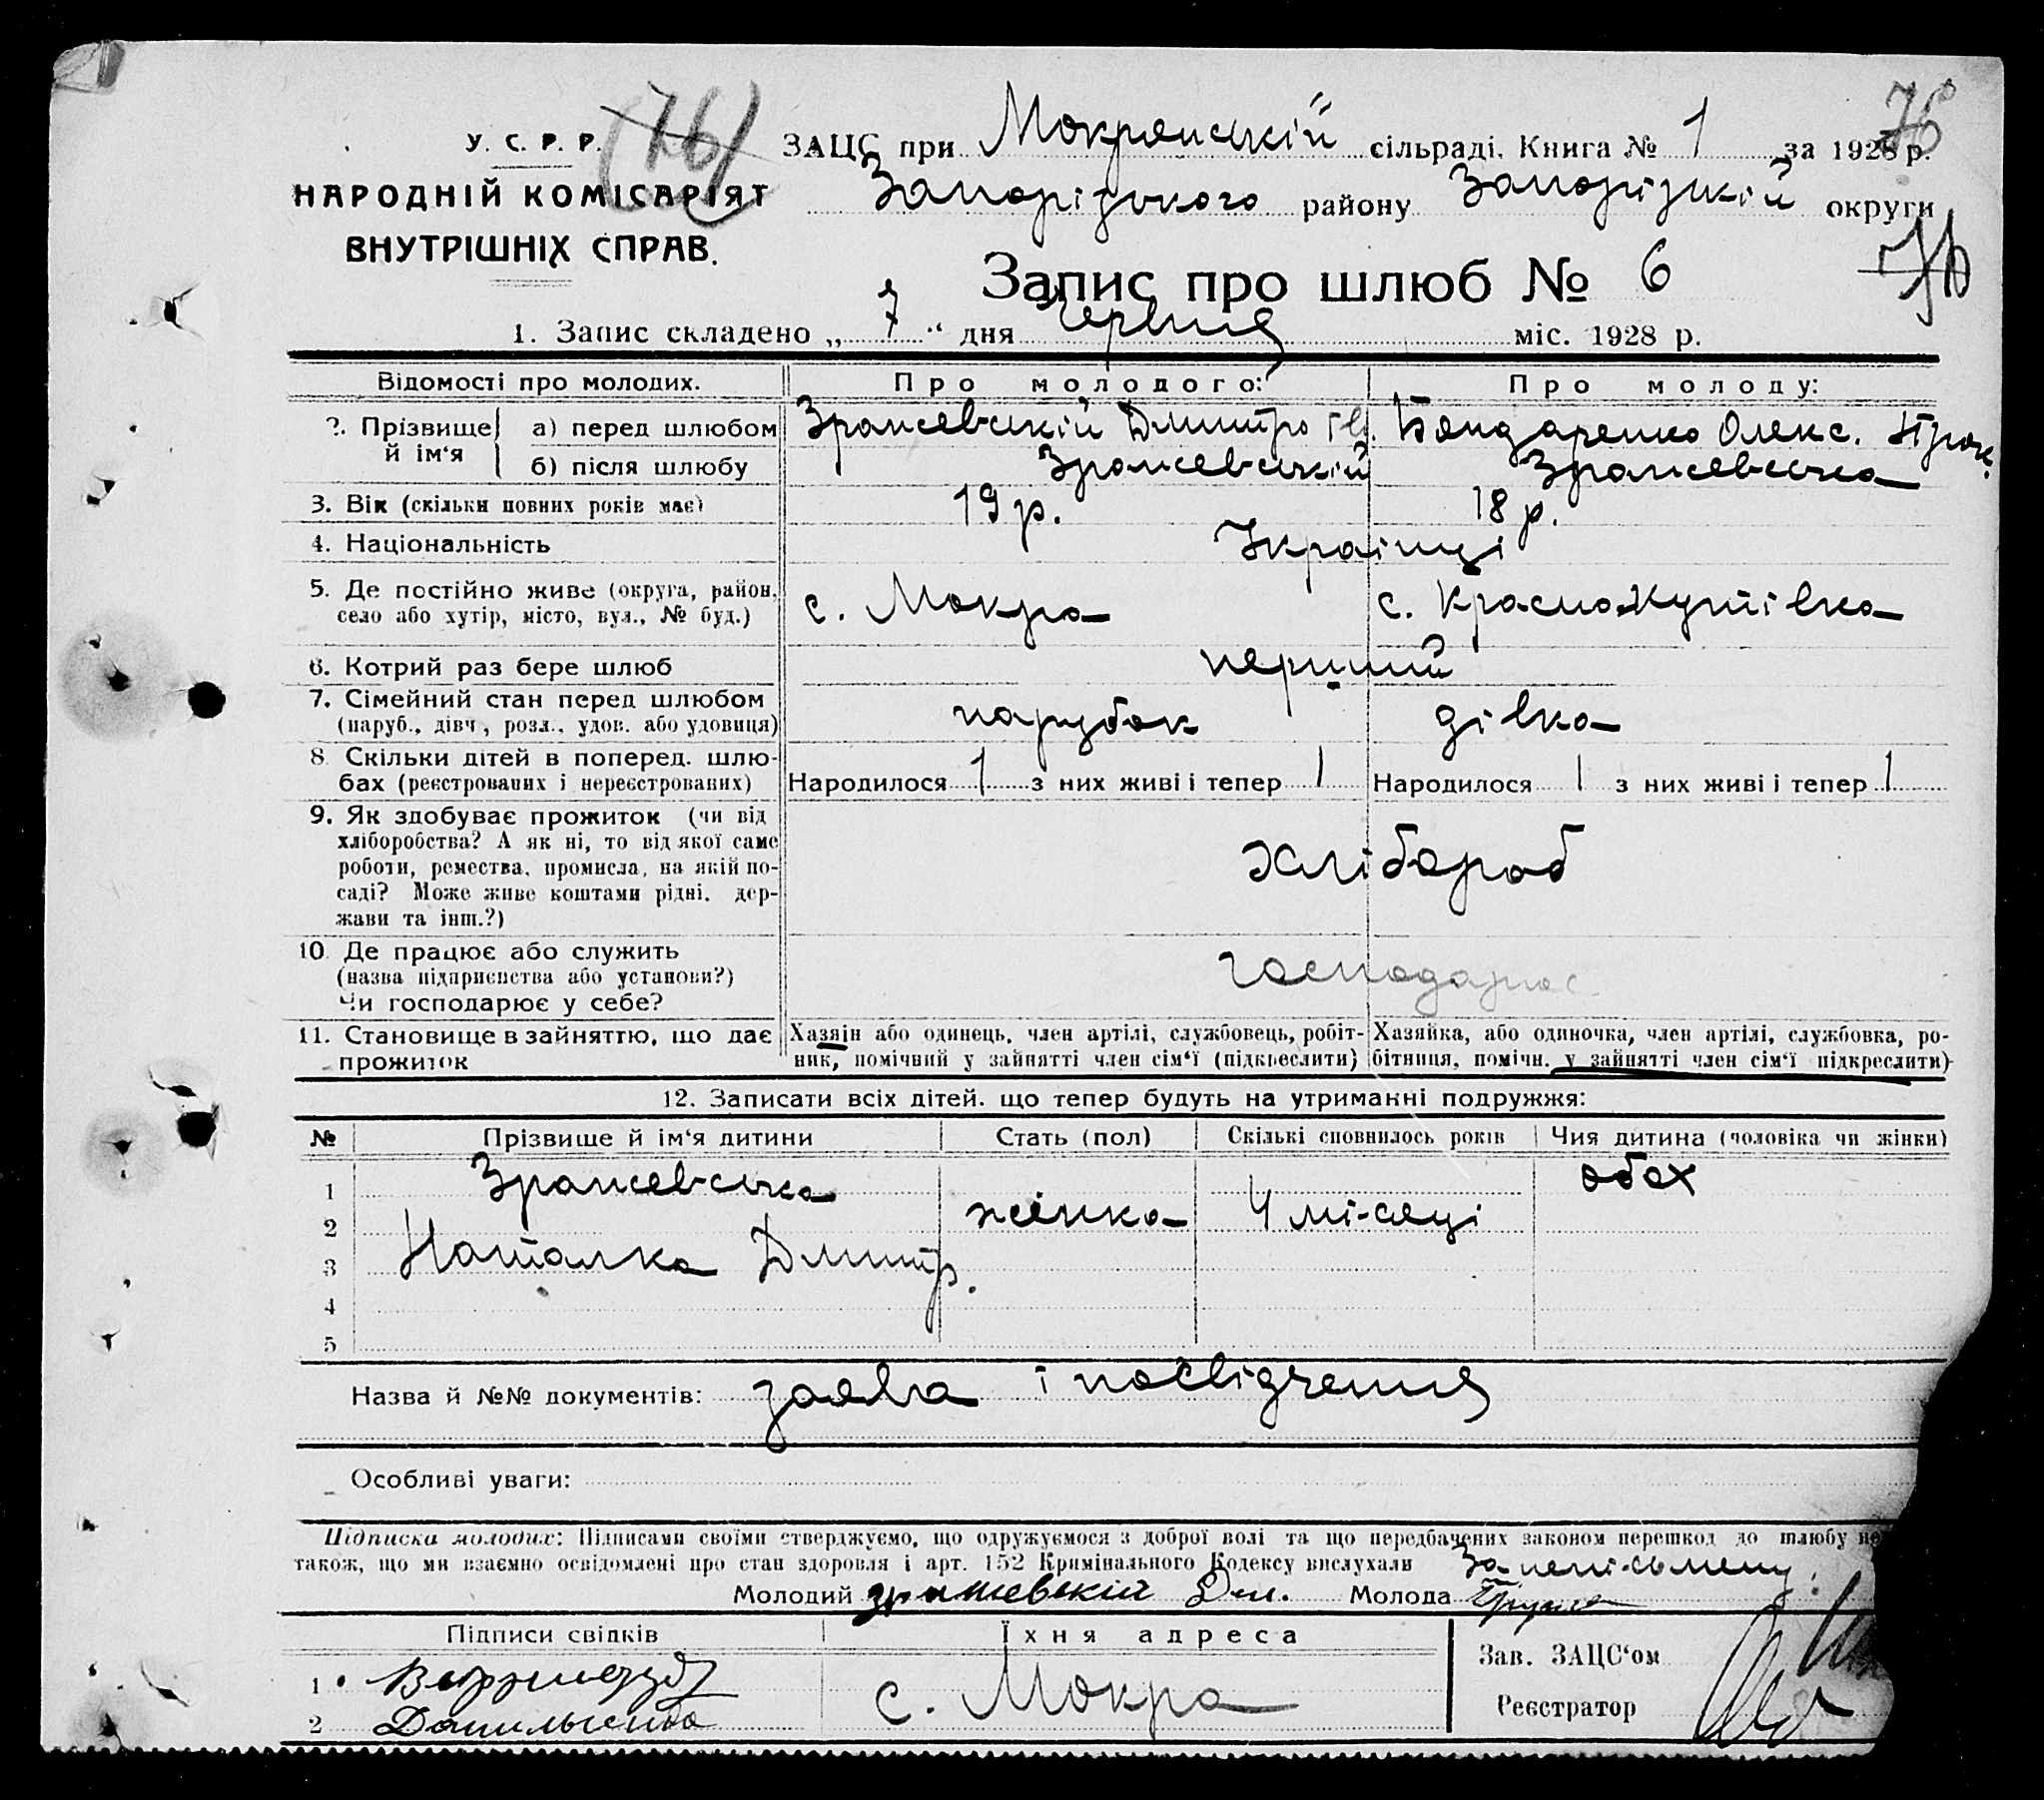 (76)
76
У. С. Р. Р.
НАРОДНІЙ КОМІСАРІЯТ
ВНУТРІШНІХ СПРАВ.
ЗАЦС при Мокрянській сільраді. Книга № 1 за 1928 р.
Запорізького району Запорізькій округи
Запис про шлюб № 6
1. Запис складено „ 7 “ дня червня міс. 1928 р.
Відомості про молодих. Про молодого: Про молоду:
2. Прізвище й ім‘я
а) перед шлюбом Зражевській Дмитро Бондаренко Олекс.
б) після шлюбу Зражевській Зражевська
3. Вік (скільки повних років має) 19 р. 18 р.
4. Національність Українці
5. Де постійно живе (округа, район, с. Мокра с. Краснокутівка
село або хутір, місто, вул., № буд.)
6. Котрий раз бере шлюб перший
7. Сімейний стан перед шлюбом парубок дівка
(паруб., дівч., розл., удов. або удовиця)
8. Скільки дітей в поперед. шлю-
бах (реєстрованих і нереєстрованих) Народилося 1 з них живі і тепер 1 Народилося 1 з них живі і тепер 1
9. Як здобуває прожиток (чи від
хліборобства? А як ні, то від якої саме
роботи, ремества, промисла, на якій по-
саді? Може живе коштами рідні, дер-
жави та інш.?)
хлібороб
10. Де працює або служить
(назва підприємства або установи?)
Чи господарює у себе?
господарює
11. Становище в зайняттю, що дає Хазяїн або одинець, член артілі, службовець, робіт- Хазяйка, або одиночка, член артілі, службовка, ро-
прожиток ник, помічний у зайнятті член сім‘ї (підкреслити) бітниця, помічн. у зайнятті член сім‘ї підкреслити)
12. Записати всіх дітей, що тепер будуть на утриманні подружжя:
№ Прізвище й ім‘я дитини Стать (пол) Скількі сповнилось років Чия дитина (чоловіка чи жінки)
1 Зражевська обох
2 жінка 4 місяці
3 Наталка Дмитр.
4
5
Назва й №№ документів: заява і посвідчення
Особливі уваги:
Підписка молодих: Підписами своїми стверджуємо, що одружуємося з доброї волі та що передбачених законом перешкод до шлюбу не
також, що ми взаємно освідомлені про стан здоровля і арт. 152 Кримінального Кодексу вислухали За неписьмену
Молодий Зражевскій Дм. Молода
Підписи свідків Їхня адреса
1
2 с. Мокра
Зав. ЗАЦС‘ом
Реєстратор